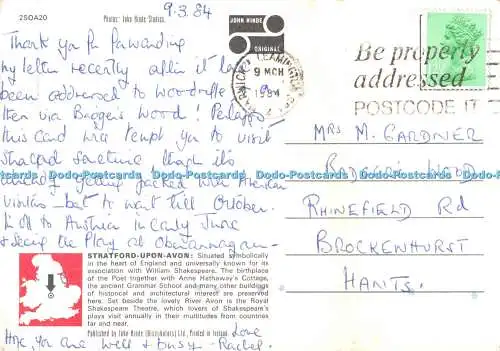 2SOA20
Photos: John Hinde Studios.
9.3.84
JOHN HINDE
ORIGINAL
Thank you for forwarding
my letter recently after it had
been addressed to Woodcliffe
then via Beggars Wood! Perhaps
this card will tempt you to visit
Stratford sometime though it's
already getting packed with American
visitors - but to wait till October.
I'm off to Austria in early June
& seeing the Play at Oberammergau -
STRATFORD-UPON-AVON: Situated symbolically
in the heart of England and universally known for its
association with William Shakespeare. The birthplace
of the Poet together with Anne Hathaway's Cottage,
the ancient Grammar School and many other buildings
of historical and architectural interest are preserved
here. Set beside the lovely River Avon is the Royal
Shakespeare Theatre, which lovers of Shakespeare's
plays visit annually in their multitudes from countries
far and near.
Published by John Hinde (Distributors) Ltd., Printed in Ireland.
Love
Hope you are well & busy - Rachel.
WARWICKS
LEAMINGTON SPA
9 MCH
1984
Be properly
addressed
POSTCODE IT
MRS M. GARDNER
WOOD
RHINEFIELD Rd
BROCKENHURST
HANTS.
Dodo-Postcards Dodo-Postcards Dodo-Postcards